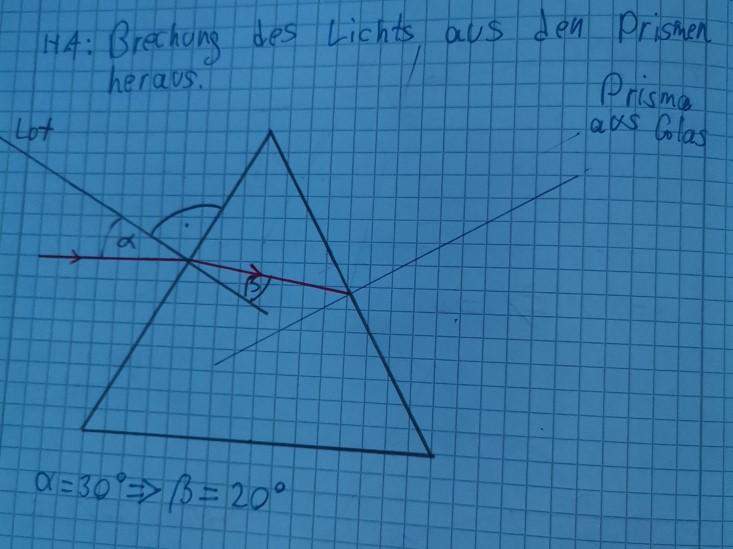 HA: Brechung des Lichts, aus den Prismen
heraus.
Prisma
aus Glas
Lot
α
β
α=30°=> β=20°